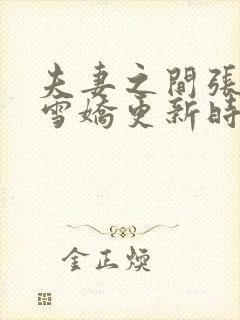 夫妻之間張
雪嬌更新時
金正煥